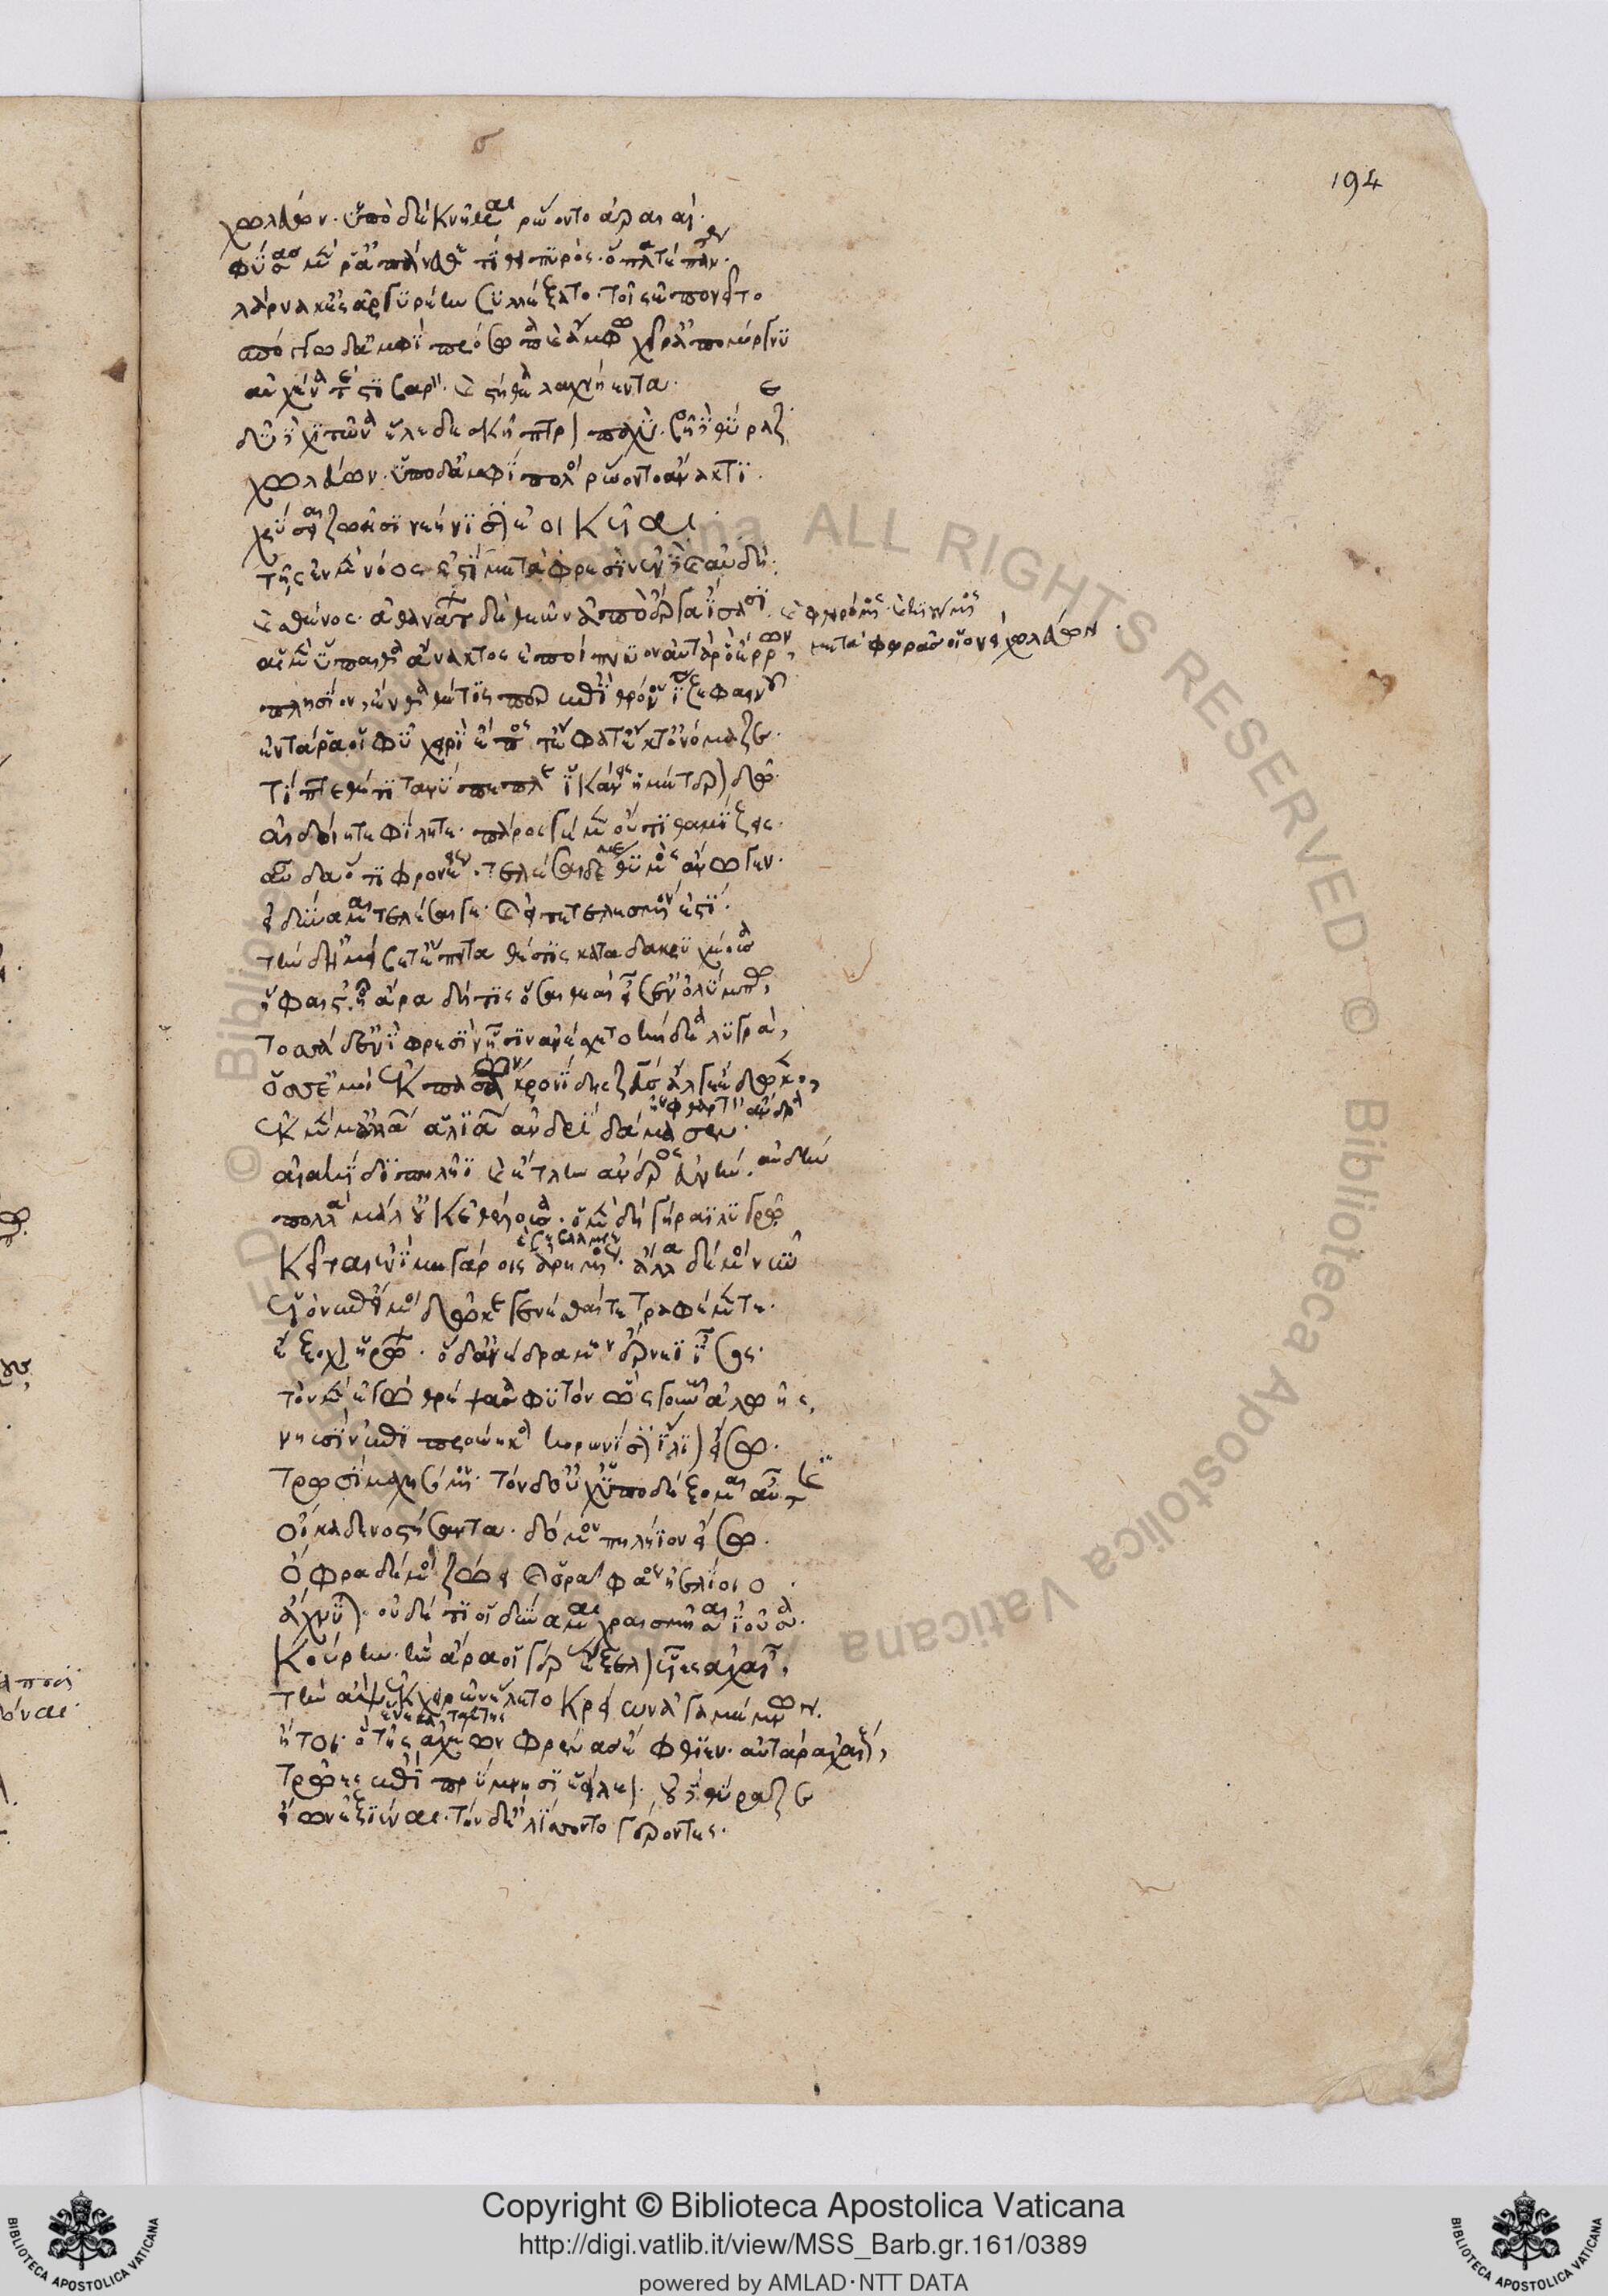 194
χωλεύων· ὑπὸ δὲ κνῆμαι ῥώοντο ἀραιαί·
φύσας μέν ῥ' ἀπάνευθε τίθει πυρός· ὅπλα τε πάντα·
λάρνακ' ἐς ἀργυρέην συλλέξατο· τοῖς ἐπονεῖτο
σπόγγω δ' ἀμφὶ πρόσωπα καὶ ἄμφω χεῖρ' ἀπομόργνυ
αὐχένα τε στιβαρὸν· καὶ στήθεα λαχνήεντα·
δῦ δὲ χιτῶνα ἕλε δὲ σκῆπτρον παχὺ· βῆ δὲ θύραζε
χωλεύων· ὑπὸ δ' ἀμφίπολοι ῥώοντο ἄνακτι·
χρύσειαι ζωῆσι νεήνισιν εἰοικυῖαι·
τῆς ἐν μὲν νόος ἐστὶ μετὰ φρεσὶν ἐν δὲ καὶ αὐδὴ·
καὶ σθένος· ἀθανάτων δὲ θεῶν ἀπὸ ἔργα ἴσασι·
αἱ μὲν ὕπαιθα ἄνακτος ἐποίπνυον αὐτὰρ ὁ ἔρρων,
πλησίον, ἔνθα θέτις περ ἐπὶ θρόνου ἷζε φαεινοῦ
ἐν τ' ἄρα οἱ φῦ χειρὶ ἔπος τ' ἔφατ' ἔκ τ' ὀνόμαζε·
τίπτε θέτι τανύπεπλε ἱκάνεις ἡμέτερον δῶ·
αἰδοίη τε φίλη τε· πάρος γε μὲν οὔτι θαμίζεις·
αὔδα ὅ τι φρονέεις· τελέσαι δέ με θυμὸς ἄνωγεν·
εἰ δύναμαι τελέσαι γε· καὶ εἰ τετελεσμένον ἐστί·
τὴν δ' ἠμείβετ' ἔπειτα θέτις κατὰ δάκρυ χέουσα
ἥφαιστ' ἦ ἄρα δή τις ὅσαι θεαί εἰσ' ἐν ὀλύμπω,
τοσσάδ' ἐνὶ φρεσὶν ᾗσιν ἀνέσχετο κήδεα λυγρά,
ὅσσ' ἐμοὶ ἐκ πασέων κρονίδης ζεὺς ἄλγε' ἔδωκεν,
ἐκ μέν μ' ἀλλάων ἁλιάων ἀνδρὶ δάμασεν·
αἰακίδη πηλῆϊ καὶ ἔτλην ἀνδρὸς εὐνήν·
πολλὰ μάλ' οὐκ ἐθέλουσα· ὁ μὲν δὴ γήραϊ λυγρῶ
κεῖται ἐνὶ μεγάροις ἀρημένος· ἄλλα δέ μοι νῦν
υἱὸν ἐπεί μοι δῶκε γενέσθαι τε τραφέμεν τε·
ἔξοχον ἡρώων· ὁ δ' ἀνέδραμεν ἔρνεϊ ἶσος·
τὸν μὲν ἐγὼ θρέψασα φυτὸν ὣς γουνῶ ἀλωῆς,
νηυσὶν ἐπὶ προέηκα κορωνίσιν ἴλιον εἴσω·
τρωσὶ μαχησόμενον· τὸν δ' οὐχ ὑποδέξομαι αὖτις
οἴκαδε νοστήσαντα· δόμον πηλήϊον εἴσω·
ὄφρα δέ μοι ζώει καὶ ὁρᾷ φάος ἠελίοιο·
ἄχνυται· οὐδέ τί οἱ δύναμαι χραισμῆσαι ἰοῦσα·
κούρην· ἣν ἄρα οἱ γέρας ἔξελον υἷες ἀχαιῶν,
τὴν ἂψ ἐκ χειρῶν ἕλετο κρείων ἀγαμέμνων·
ἤτοι ὁ τῆς ἀχέων φρένας ἔφθιεν· αὐτὰρ ἀχαιούς,
τρῶες ἐπὶ πρύμνησιν ἐείλεον· οὐδὲ θύραζε
εἴων ἐξιέναι· τὸν δὲ λίσσοντο γέροντες·
Copyright © Biblioteca Apostolica Vaticana
http://digi.vatlib.it/view/MSS_Barb.gr.161/0389
powered by AMLAD·NTT DATA